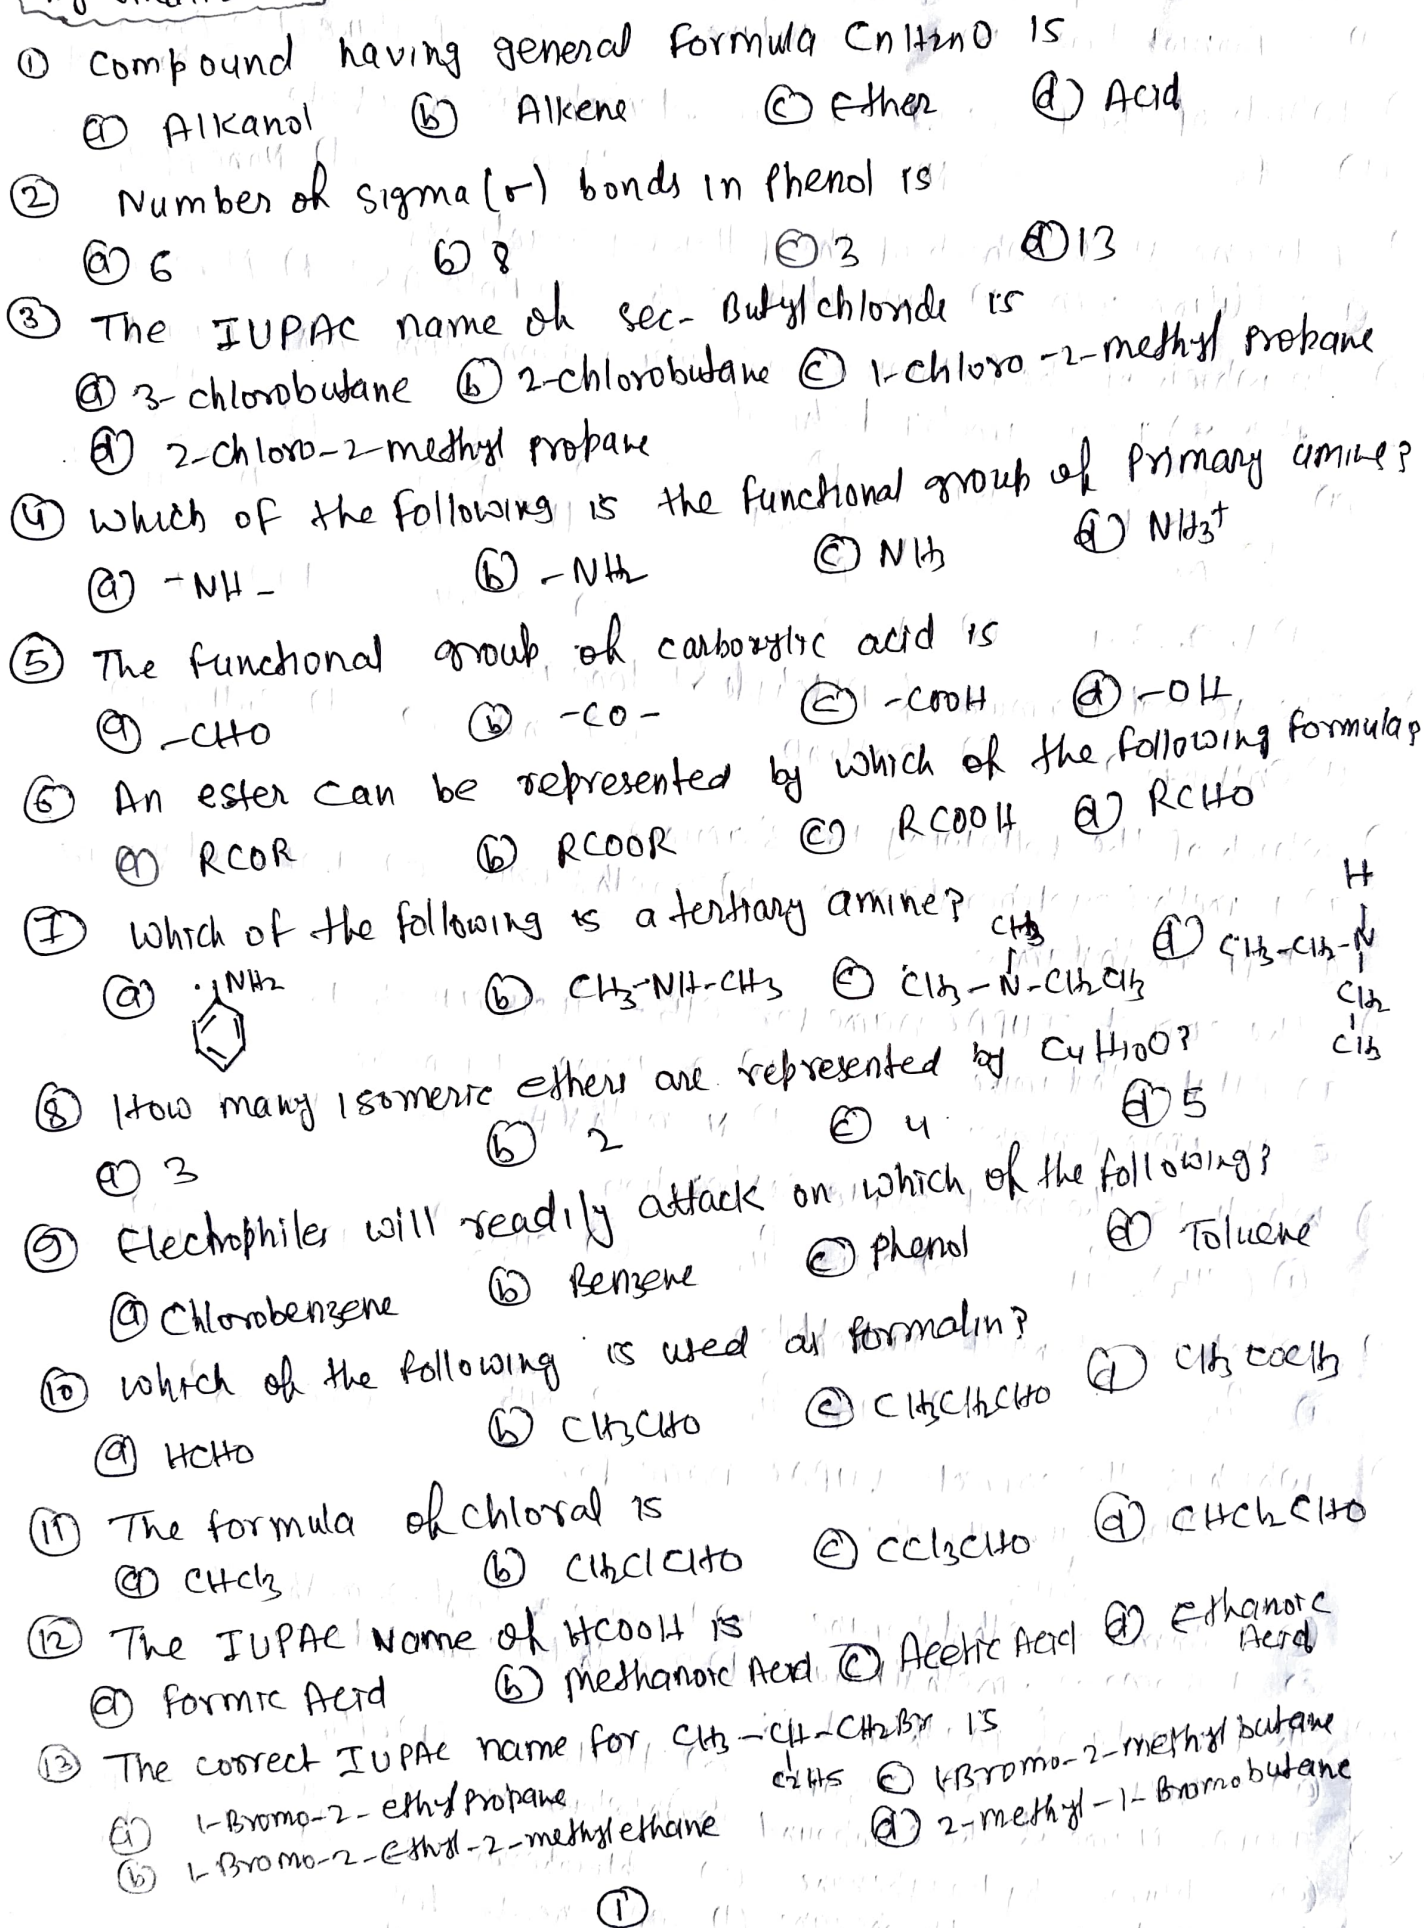 ① Compound having general formula CnH2nO is
ⓐ Alkanol ⓑ Alkene ⓒ Ether ⓓ Acid
② Number of sigma (σ) bonds in Phenol is
ⓐ 6 ⓑ 8 ⓒ 3 ⓓ 13
③ The IUPAC name of sec- Butyl chloride is
ⓐ 3-chlorobutane ⓑ 2-chlorobutane ⓒ 1-chloro-2-methyl propane
ⓓ 2-chloro-2-methyl propane
④ Which of the following is the functional group of Primary amine?
ⓐ -NH- ⓑ -NH2 ⓒ NH3 ⓓ NH3+
⑤ The functional group of carboxylic acid is
ⓐ -CHO ⓑ -CO- ⓒ -COOH ⓓ -OH
⑥ An ester can be represented by which of the following formula?
ⓐ RCOR ⓑ RCOOR ⓒ RCOOH ⓓ RCHO
⑦ Which of the following is a tertiary amine?
ⓐ NH2 ⓑ CH3-NH-CH3 ⓒ CH3-N-CH2CH3 CH3 ⓓ CH3-CH2-N H CH2 CH3
⑧ How many isomeric ethers are represented by C4H10O?
ⓐ 3 ⓑ 2 ⓒ 4 ⓓ 5
⑨ Electrophiles will readily attack on which of the following?
ⓐ Chlorobenzene ⓑ Benzene ⓒ Phenol ⓓ Toluene
⑩ Which of the following is used as formalin?
ⓐ HCHO ⓑ CH3CHO ⓒ CH3CH2CHO ⓓ CH3COCH3
⑪ The formula of chloral is
ⓐ CHCl3 ⓑ CH2ClCHO ⓒ CCl3CHO ⓓ CHCl2CHO
⑫ The IUPAC Name of HCOOH is
ⓐ formic Acid ⓑ Methanoic Acid ⓒ Acetic Acid ⓓ Ethanoic Acid
⑬ The correct IUPAC name for CH3-CH-CH2Br is
C2H5
ⓐ 1-Bromo-2-ethyl Propane ⓒ 1-Bromo-2-methyl butane
ⓑ 1-Bromo-2-Ethyl-2-methyl ethane ⓓ 2-methyl-1-Bromobutane
①